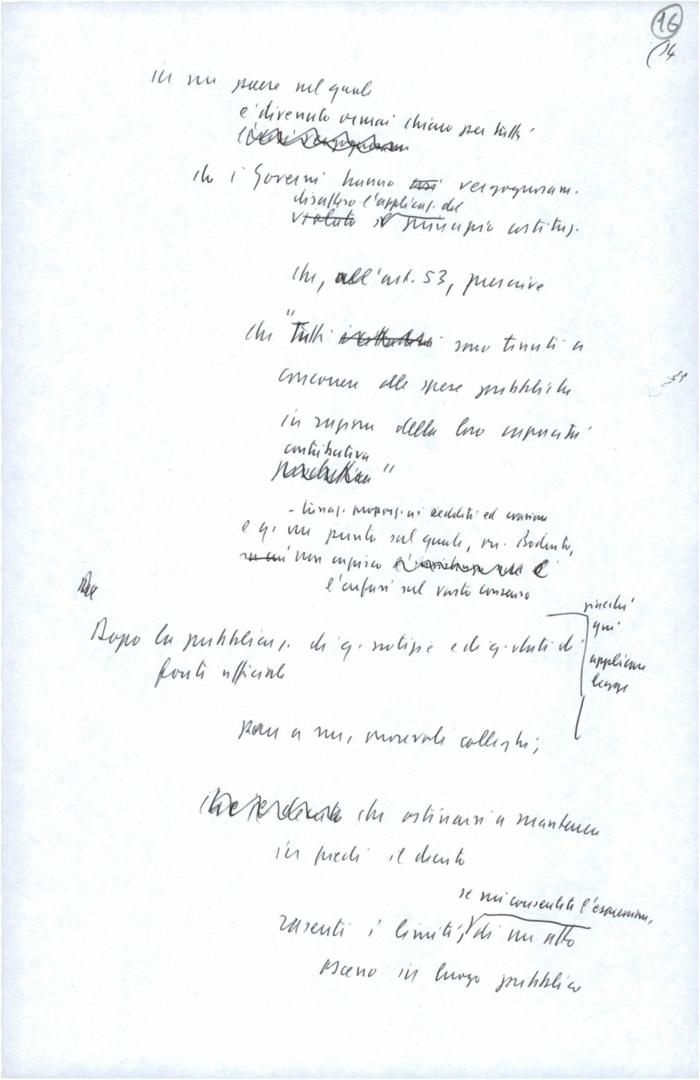 16
14
in un paese nel quale
è divenuto ormai chiaro per tutti
che i Governi hanno vergognosam.
disatteso l'applicaz. del
violato il principio costituz.
che, all'art. 53, prescrive
che "Tutti sono tenuti a
concorrere alle spese pubbliche
in ragione della loro capacità
contributiva
produttiva"
ai redditi ed evasione
è q. un punto sul quale, on. Bodrato,
non capisco
l'enfasi sul vasto consenso
Dopo la pubblicaz. di q. notizie e di q. dati di
fonti ufficiale
pare a me, onorevoli colleghi,
che ostinarsi a mantenere
in piedi il decreto
se mi consentite l'espressione,
rasenti i limiti, di un atto
osceno in luogo pubblico
perché
qui
applicare
legge